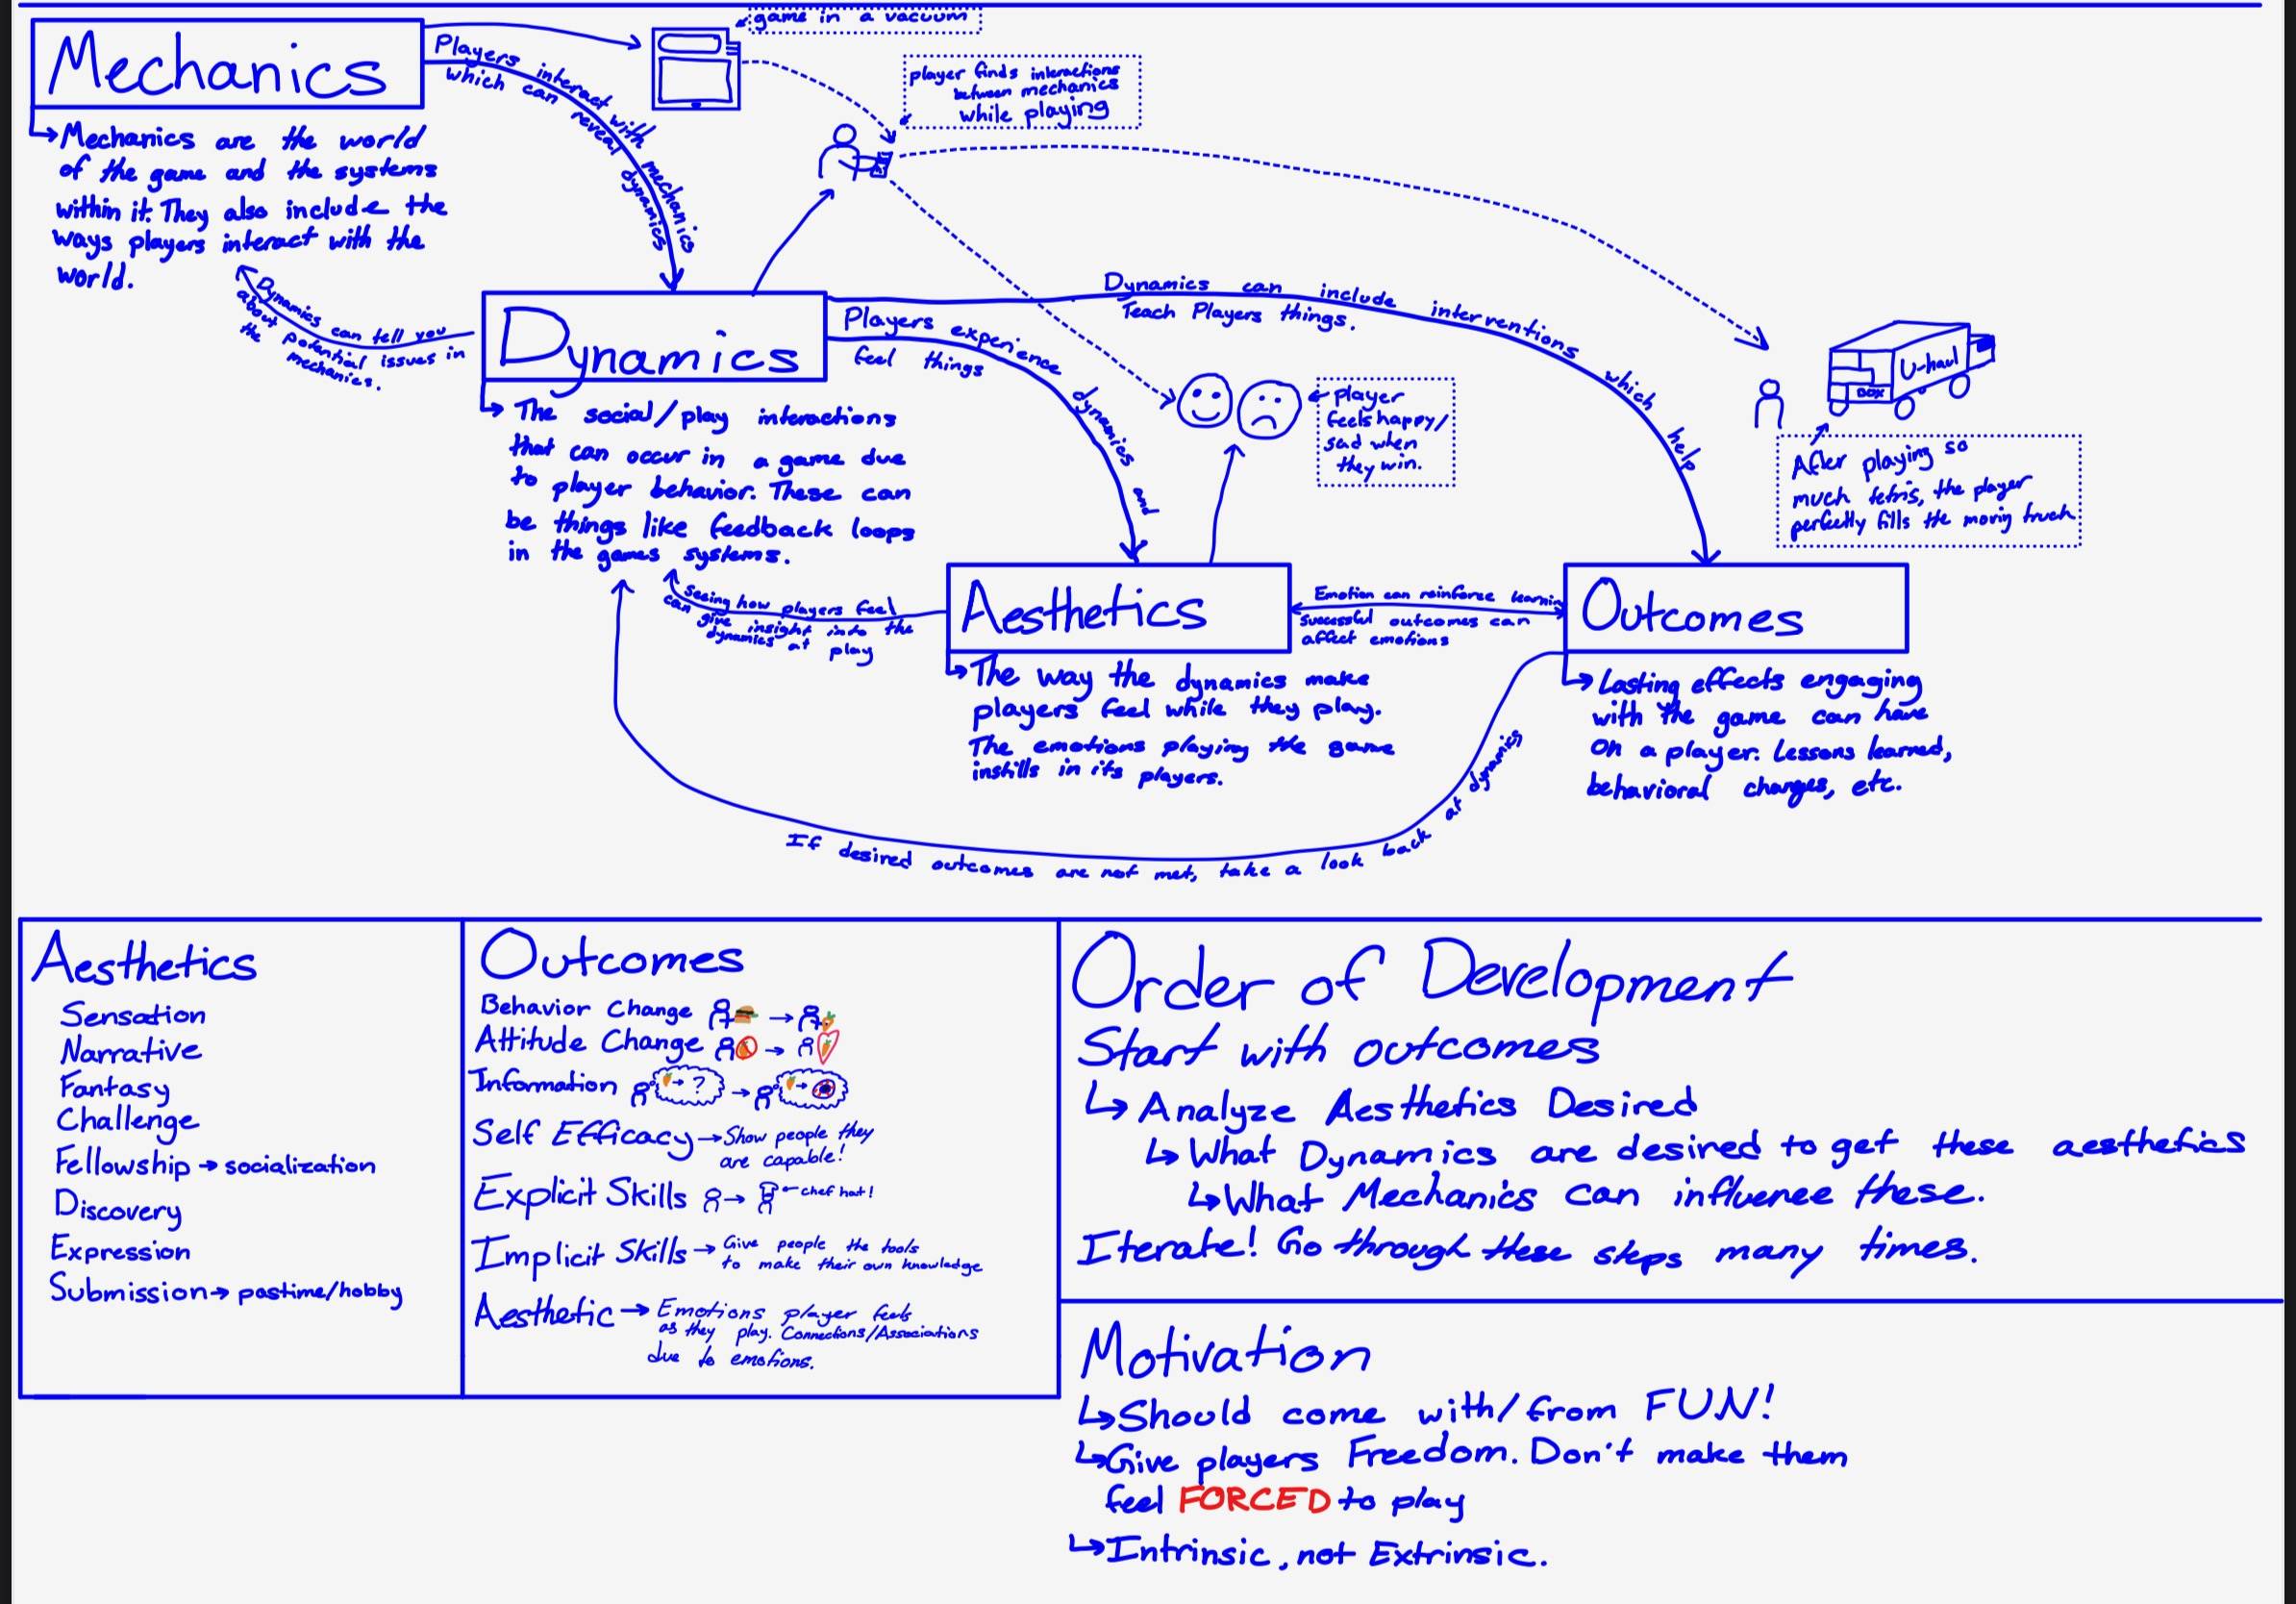 Mechanics
Mechanics are the world
of the game and the systems
within it. They also include the
ways players interact with the
world.
Players interact with mechanics
which can reveal dynamics
game in a vacuum
player finds interactions
between mechanics
while playing
Dynamics can tell you
about potential issues in
the mechanics.
Dynamics
The social/play interactions
that can occur in a game due
to player behavior. These can
be things like feedback loops
in the games systems.
Players experience dynamics and
feel things
Dynamics can include interventions which help
Teach Players things.
player
feels happy/
sad when
they win.
U-haul
BOX
After playing so
much tetris, the player
perfectly fills the moving truck
seeing how players feel
can give insight into the
dynamics at play
Aesthetics
The way the dynamics make
players feel while they play.
The emotions playing the game
instills in its players.
Emotion can reinforce learning
successful outcomes can
affect emotions
Outcomes
Lasting effects engaging
with the game can have
on a player. Lessons learned,
behavioral changes, etc.
If desired outcomes are not met, take a look back at dynamics
Aesthetics
Sensation
Narrative
Fantasy
Challenge
Fellowship → socialization
Discovery
Expression
Submission → pastime/hobby
Outcomes
Behavior Change →
Attitude Change →
Information → ? → →
Self Efficacy → Show people they
are capable!
Explicit Skills → ← chef hat!
Implicit Skills → Give people the tools
to make their own knowledge
Aesthetic → Emotions player feels
as they play. Connections/Associations
due to emotions.
Order of Development
Start with outcomes
↳ Analyze Aesthetics Desired
↳ What Dynamics are desired to get these aesthetics
↳ What Mechanics can influence these.
Iterate! Go through these steps many times.
Motivation
↳ Should come with/from FUN!
↳ Give players Freedom. Don't make them
feel FORCED to play
↳ Intrinsic, not Extrinsic.